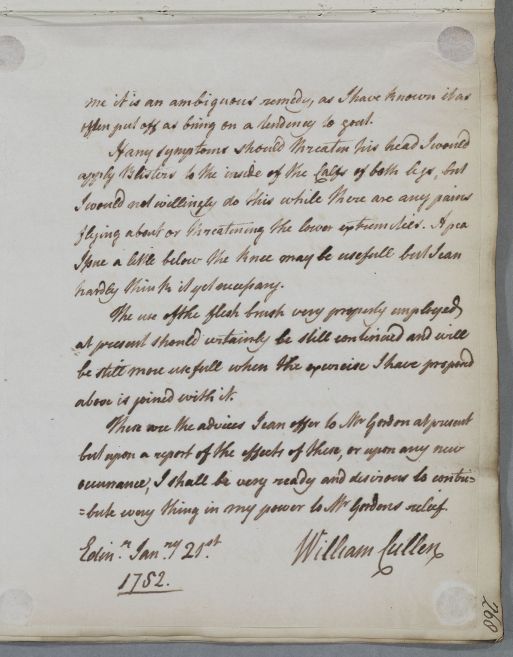 me it is an ambiguous remedy, as I have known it as
often put off as bring on a tendency to gout.
If any symptoms should threaten his head I would
apply Blisters to the inside of the Calfs of both legs, but
I would not willingly do this while there are any pains
flying about or threatening the lower extremities. A pea
Issue a little below the knee may be usefull but I can
hardly think it yet necessary.
The use of the flesh brush very properly employed
at present should certainly be still continued and will
be still more usefull when the exercise I have proposd
above is joined with it.
These are the advices I can offer to Mr Gordon at present
but upon a report of the effects of these, or upon any new
occurrance, I shall be very ready and desirous to contri=
=bute every thing in my power to Mr Gordons relief.
Edinr. Janry 21st.
William Cullen
1782.
268